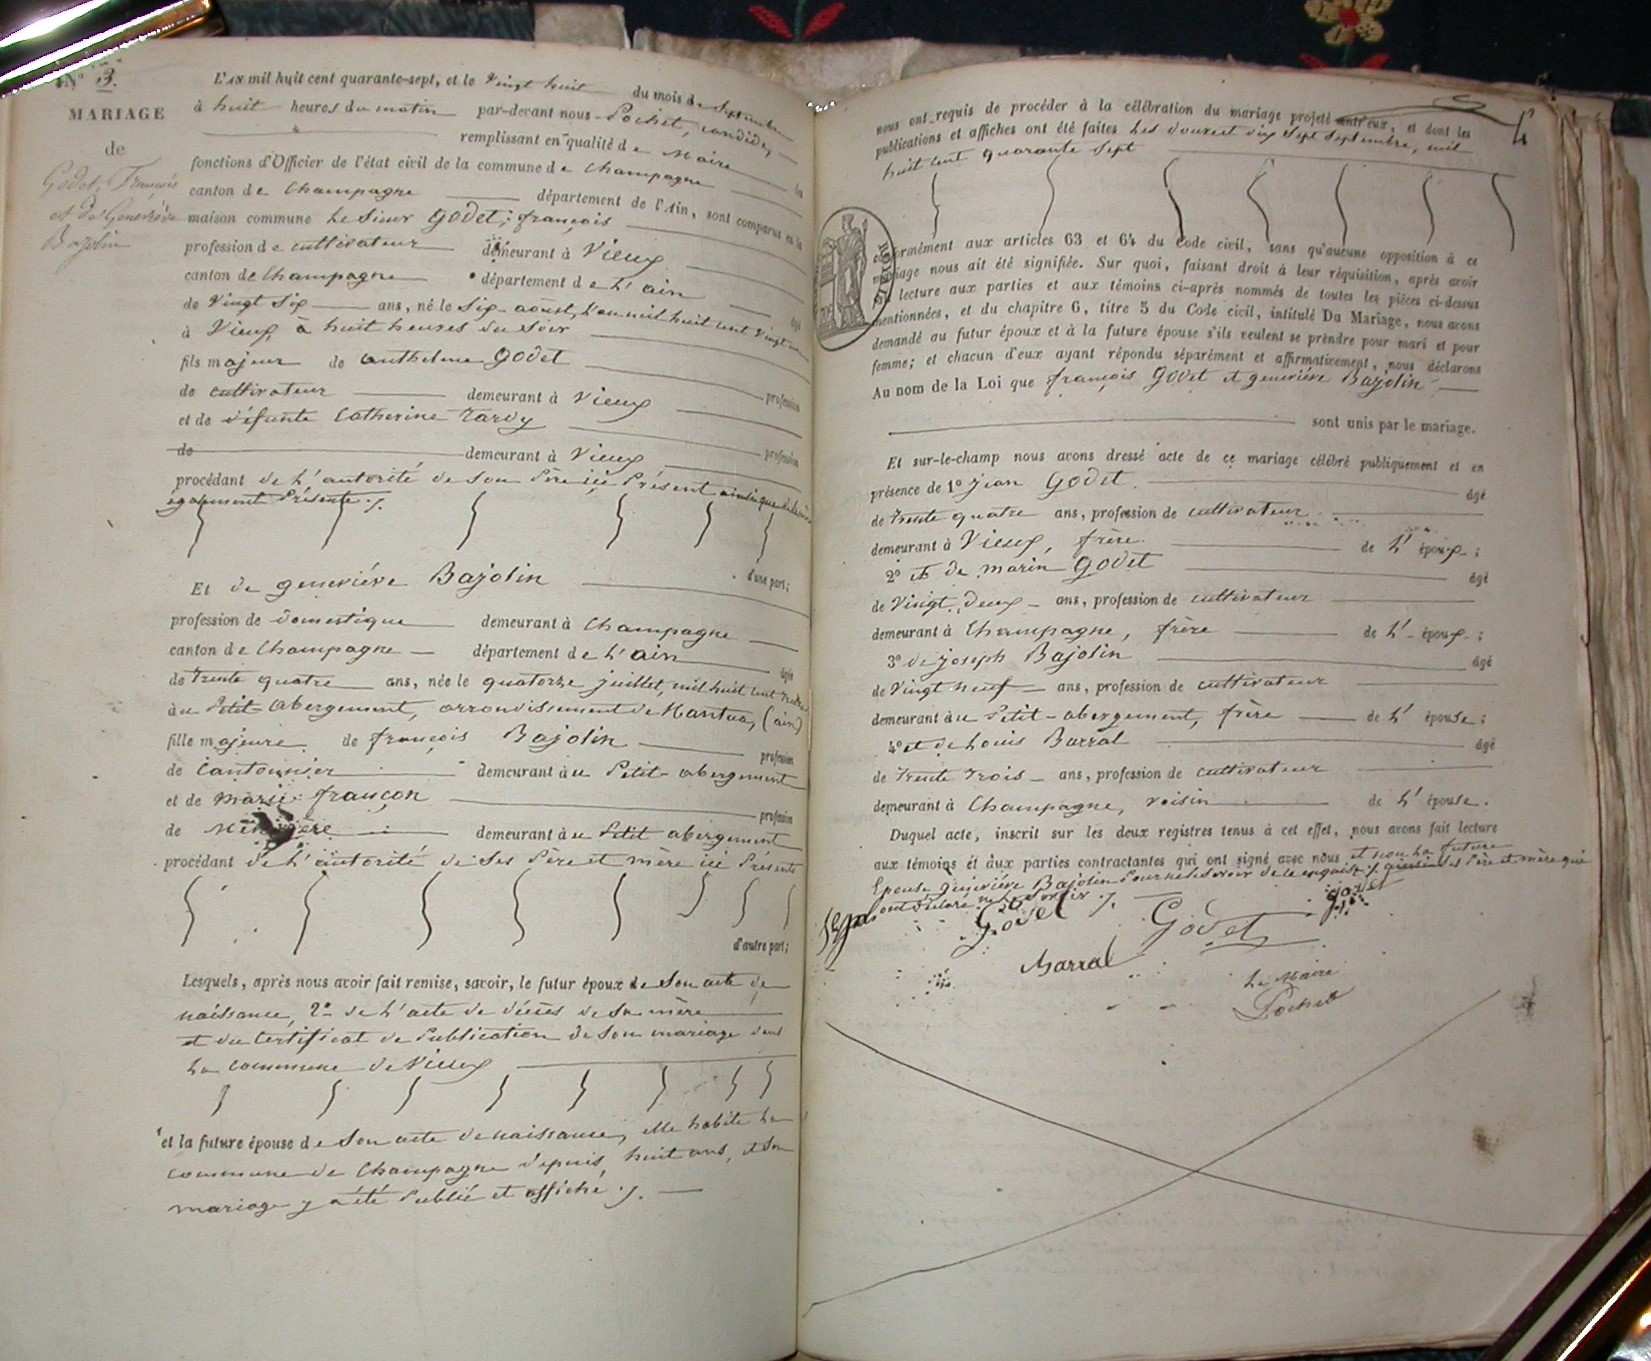 N° 3.
MARIAGE
de
Godet, François
et de Geneviève
Bajolin
L'AN mil huit cent quarante-sept, et le Vingt huit du mois de Septembre
à huit heures du matin par-devant nous Pochet, candide,
remplissant en qualité de Maire les
fonctions d'Officier de l'état civil de la commune de Champagne
canton de Champagne département de l'Ain, sont comparus en la
maison commune Le Sieur Godet, françois
profession de cultivateur demeurant à Vieux
canton de Champagne département de L'ain âgé
de Vingt Six ans, né le Six août, L'an mil huit cent Vingt un
à Vieux, à huit heures du Soir
fils majeur de anthelme Godet profession
de cultivateur demeurant à Vieux
et de défunte Catherine Tardy profession
de demeurant à Vieux
procédant de L'autorité de Son Père ici Présent
également Présente ./.
d'une part;
Et de geneviève Bajolin
profession de Domestique demeurant à Champagne
canton de Champagne département de L'ain âgée
de Trente quatre ans, née le quatorze juillet, mil huit cent treize
à u Petit-abergement, arrondissement de Nantua, (ain)
fille majeure de françois Bajolin profession
de Cantonnier demeurant à u Petit-abergement
et de Marie françon profession
de Ménagère demeurant à u Petit abergement
procédant de L'autorité de Ses Père et mère ici Présents
d'autre part;
Lesquels, après nous avoir fait remise, savoir, le futur époux de Son acte de
naissance, 2° de L'acte de décès de Sa mère
et du Certificat de Publication de Son mariage dans
La commune de Vieux
et la future épouse de Son acte de naissance, elle habite La
commune de Champagne depuis, huit ans, et Son
mariage y a été Publié et affiché ./.
4
nous ont requis de procéder à la célébration du mariage projeté entre eux, et dont les
publications et affiches ont été faites Les douze et dix Sept Septembre, mil
huit cent quarante Sept
ROYAL
conformément aux articles 63 et 64 du Code civil, sans qu'aucune opposition à ce
mariage nous ait été signifiée. Sur quoi, faisant droit à leur réquisition, après avoir
lecture aux parties et aux témoins ci-après nommés de toutes les pièces ci-dessus
mentionnées, et du chapitre 6, titre 5 du Code civil, intitulé Du Mariage, nous avons
demandé au futur époux et à la future épouse s'ils veulent se prendre pour mari et pour
femme; et chacun d'eux ayant répondu séparément et affirmativement, nous déclarons
Au nom de la Loi que françois Godet et geneviève Bajolin
sont unis par le mariage.
Et sur-le-champ nous avons dressé acte de ce mariage célébré publiquement et en
présence de 1° jean Godet. âgé
de Trente quatre ans, profession de cultivateur
demeurant à Vieux, frère de L'époux;
2° et de marin Godet âgé
de Vingt-Deux ans, profession de cultivateur
demeurant à Champagne, frère de L'époux;
3° de joseph Bajolin âgé
de Vingt neuf ans, profession de cultivateur
demeurant à u Petit-abergement, frère de L'épouse;
4° et de Louis Barral âgé
de Trente Trois ans, profession de cultivateur
demeurant à Champagne, voisin de L'épouse.
Duquel acte, inscrit sur les deux registres tenus à cet effet, nous avons fait lecture
aux témoins et aux parties contractantes qui ont signé avec nous et non La future
Epouse geneviève Bajolin Pour ne Savoir de ce enquise ./. ainsi que Ses Père et mère qui
ont Déclaré ne Le Savoir ./.
Godet Godet godet
Barral
Le Maire
Pochet